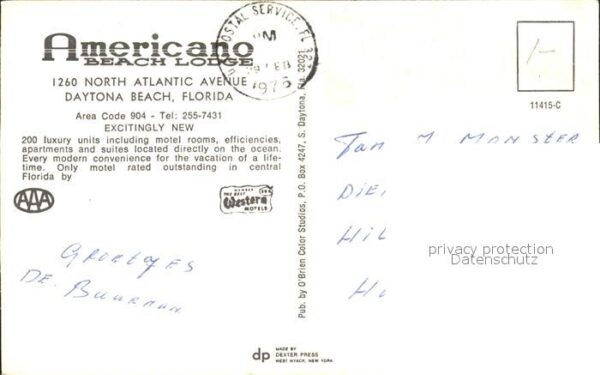 Americano
BEACH LODGE
1260 NORTH ATLANTIC AVENUE
DAYTONA BEACH, FLORIDA
Area Code 904 - Tel: 255-7431
EXCITINGLY NEW
200 luxury units including motel rooms, efficiencies,
apartments and suites located directly on the ocean.
Every modern convenience for the vacation of a life-
time. Only motel rated outstanding in central
Florida by
AAA
MEMBER
THE BEST
Western
MOTELS
POSTAL SERVICE, FL
PM
1976
Pub. by O'Brien Color Studios, P.O. Box 4247, S. Daytona, Fla. 32021
11415-C
DE. BUURMAN
TAN M
DIE
HIL
privacy protection
Datenschutz
dp
MADE BY
DEXTER PRESS
WEST NYACK, NEW YORK